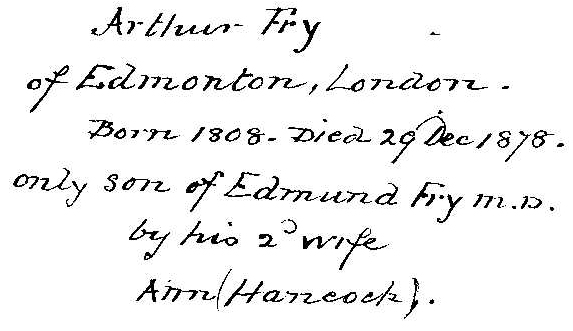 Arthur Fry
of Edmonton, London.
Born 1808. Died 29 Dec 1878.
only son of Edmund Fry M.D.
by his 2d wife
Ann (Hancock).